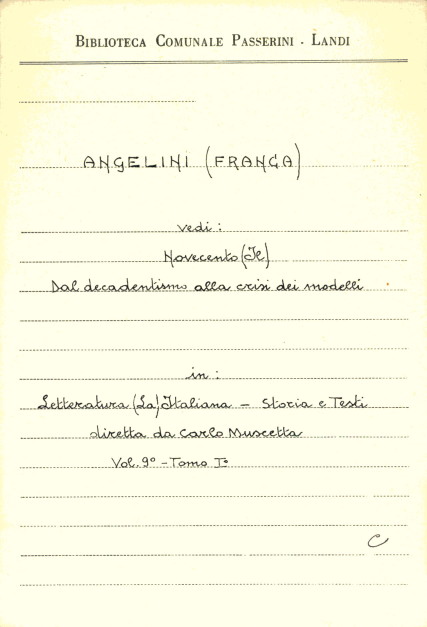 BIBLIOTECA COMUNALE PASSERINI - LANDI
ANGELINI (FRANCA)
vedi:
Novecento (Il)
Dal decadentismo alla crisi dei modelli
in:
Letteratura (La) Italiana - Storia e Testi
diretta da Carlo Muscetta
Vol. 9° - Tomo I°
C